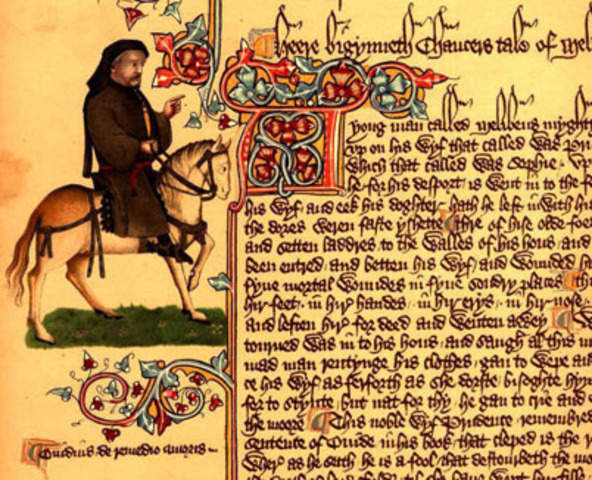 Heere bigynneth Chaucers tale of Mel
A yong man called Melibeus myght
vp on his wyf that called was Pru
which that called was Sophie . Vp
he for his desport is went in to the fe
his wyf and eek his doghter hath he left in with hir
the dores weren faste yshette Thre of hise olde foe
and setten laddres to the walles of his hous and
been entred and betten his wyf and wounded h
fyue mortal woundes in fyue sondry places thi
hir feet . in hir handes . in hir erys . in hir nose
and leften hir for deed and wenten awey W
tourned was in to his hous and saugh al this m
mad man rentynge his clothes gan to wepe an
ce his wyf as ferforth as she dorste bisoghte hym
for to stynte but nat for thy he gan to crie and w
the moore This noble wyf Prudence remembred
sentence of Ouide in his book that cleped is the r
wher as he seith he is a fool that destourbeth the mo
Ouidius de remedio amoris